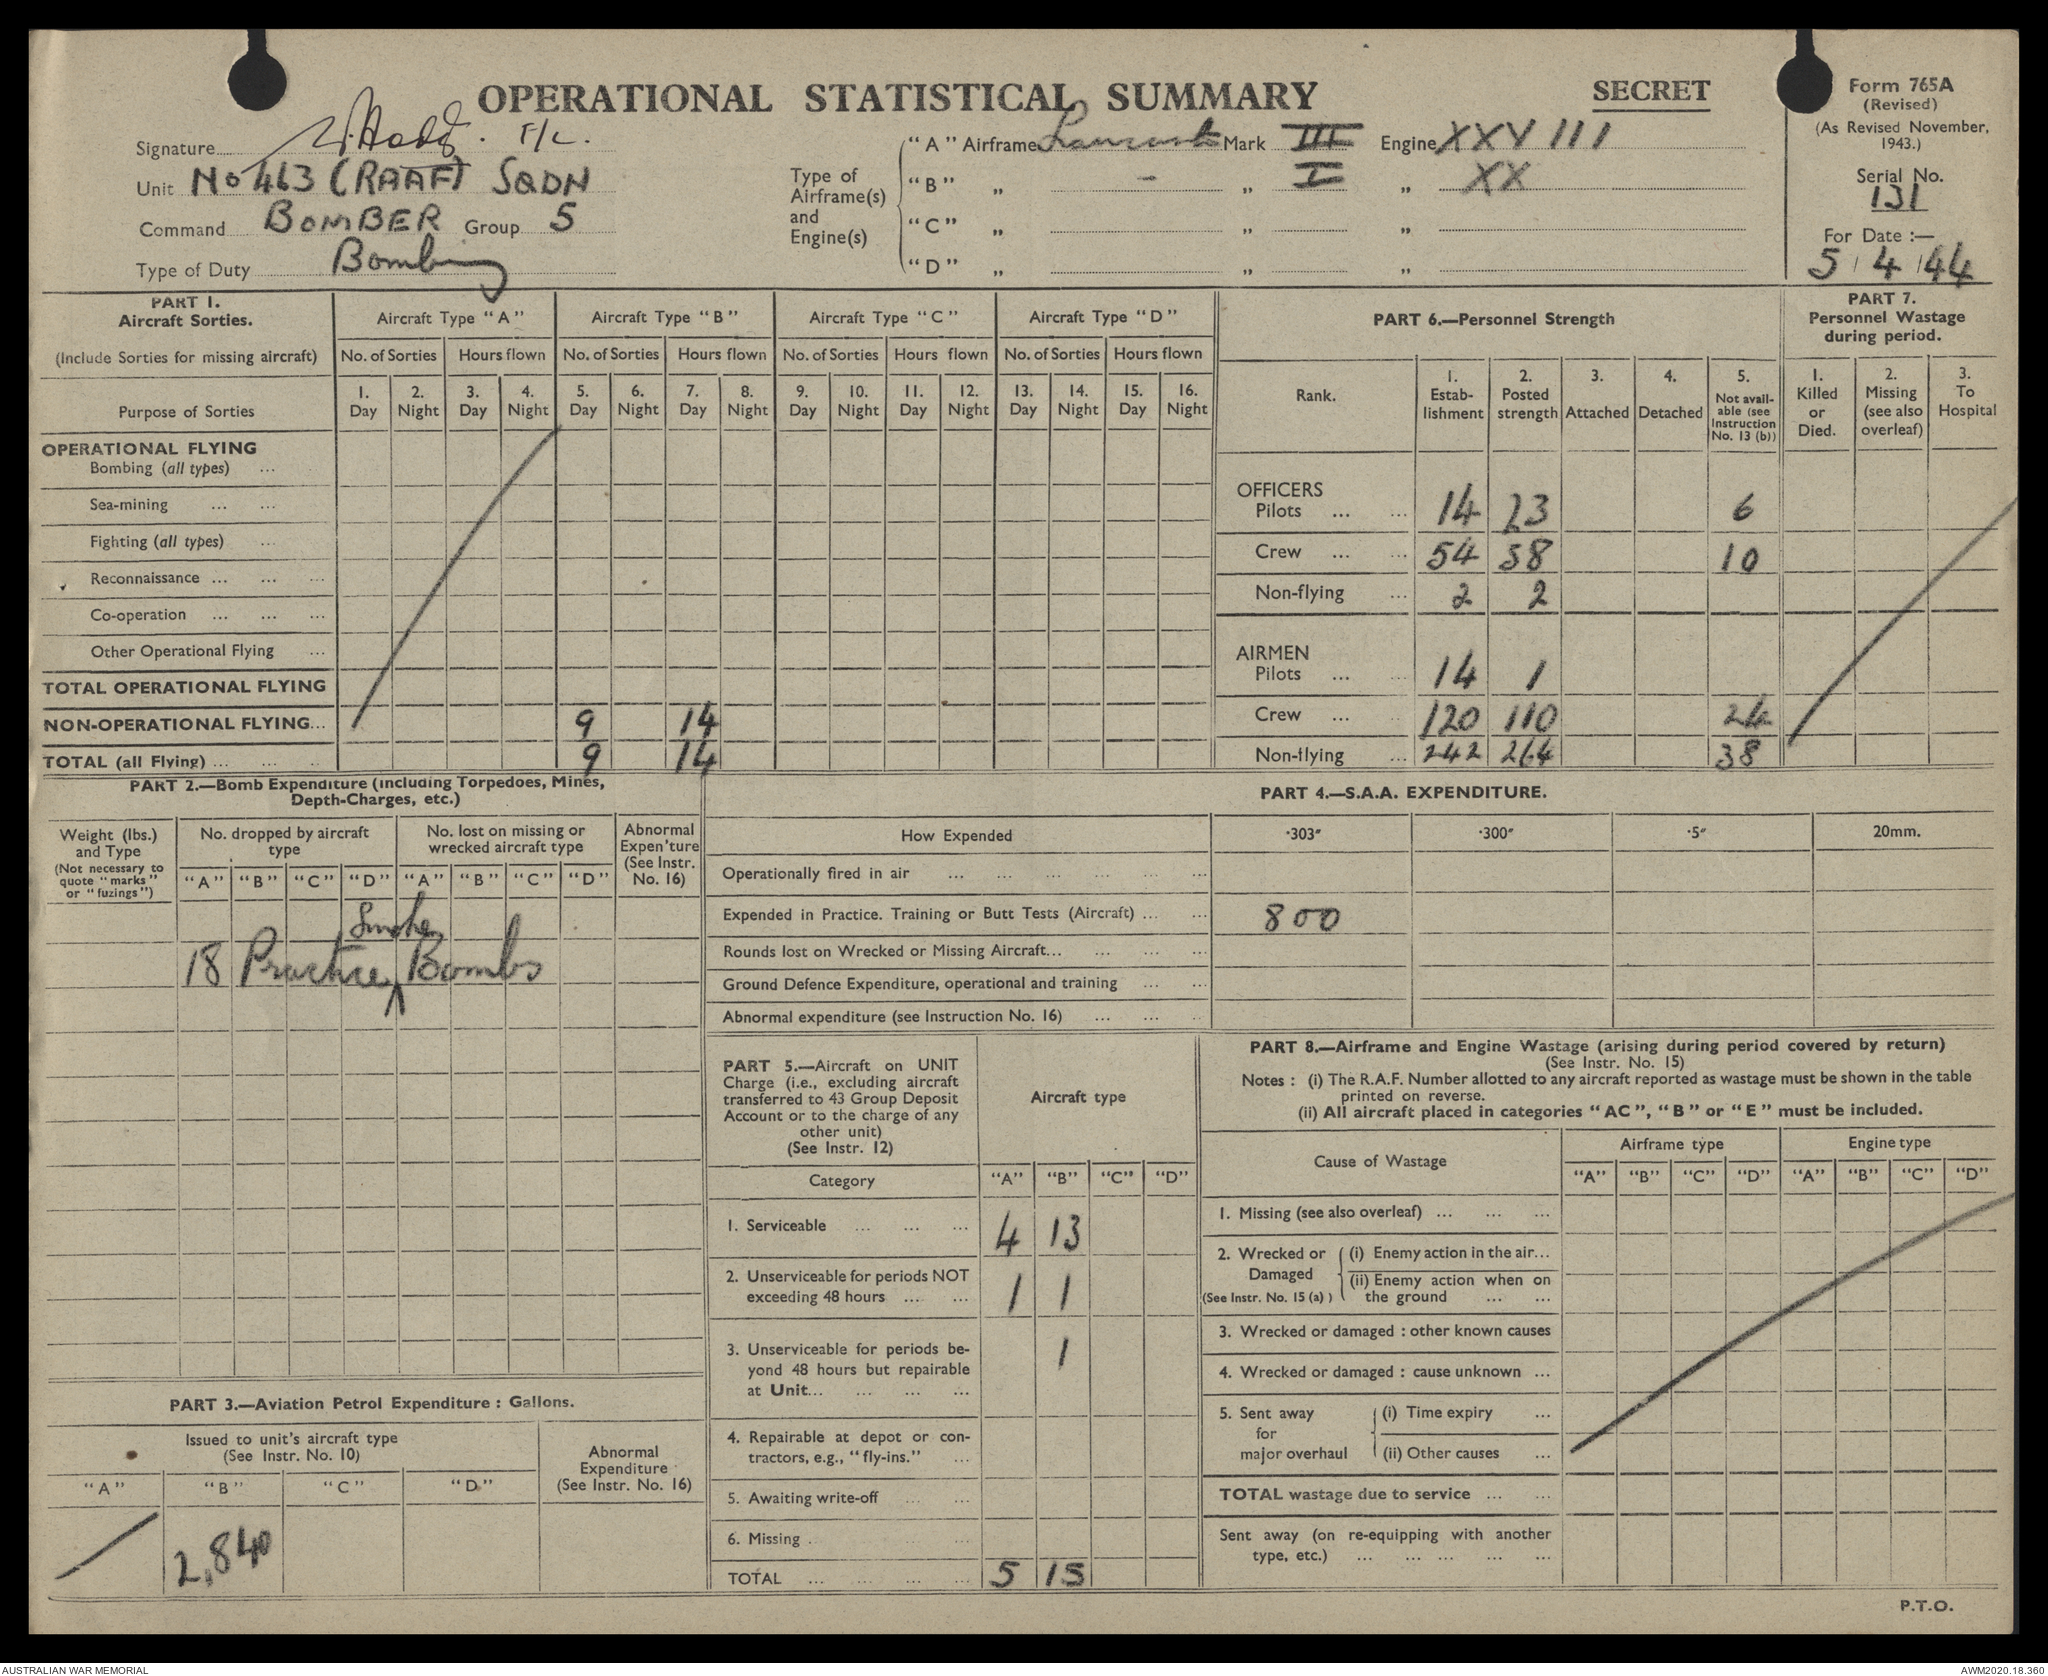 OPERATIONAL STATISTICAL SUMMARY
SECRET
Form 765A
(Revised)
(As Revised November, 1943.)
Serial No.
131
For Date :—
5 / 4 / 44
Signature F/L.
Unit No 463 (RAAF) SQDN
Command BOMBER Group 5
Type of Duty Bombing
Type of Airframe(s) and Engine(s)
"A" Airframe Lancaster Mark III Engine XXVIII
"B" „ - „ I „ XX
"C" „ „ „
"D" „ „ „
PART 1.
Aircraft Sorties.
(Include Sorties for missing aircraft)
Aircraft Type "A" Aircraft Type "B" Aircraft Type "C" Aircraft Type "D"
No. of Sorties Hours flown No. of Sorties Hours flown No. of Sorties Hours flown No. of Sorties Hours flown
Purpose of Sorties
1. Day 2. Night 3. Day 4. Night 5. Day 6. Night 7. Day 8. Night 9. Day 10. Night 11. Day 12. Night 13. Day 14. Night 15. Day 16. Night
OPERATIONAL FLYING
Bombing (all types) ...
Sea-mining ... ...
Fighting (all types) ...
Reconnaissance ... ... ...
Co-operation ... ... ...
Other Operational Flying ...
TOTAL OPERATIONAL FLYING
NON-OPERATIONAL FLYING... 9 14
TOTAL (all Flying) ... ... .. 9 14
PART 6.—Personnel Strength
Rank.
1. Estab-lishment
2. Posted strength
3. Attached
4. Detached
5. Not avail-able (see Instruction No. 13 (b))
OFFICERS
Pilots ... ... 14 23 6
Crew ... ... 54 38 10
Non-flying ... 2 2
AIRMEN
Pilots ... ... 14 1
Crew ... ... 120 110 24
Non-flying ... 242 264 38
PART 7.
Personnel Wastage
during period.
1. Killed or Died.
2. Missing (see also overleaf)
3. To Hospital
PART 2.—Bomb Expenditure (including Torpedoes, Mines,
Depth-Charges, etc.)
Weight (lbs.) and Type
(Not necessary to quote "marks" or "fuzings")
No. dropped by aircraft type
No. lost on missing or wrecked aircraft type
Abnormal Expen'ture (See Instr. No. 16)
"A" "B" "C" "D" "A" "B" "C" "D"
Smoke
18 Practice ∧ Bombs
PART 3.—Aviation Petrol Expenditure : Gallons.
Issued to unit's aircraft type
(See Instr. No. 10)
Abnormal Expenditure (See Instr. No. 16)
"A" "B" "C" "D"
2,840
PART 4.—S.A.A. EXPENDITURE.
How Expended ·303" ·300" ·5" 20mm.
Operationally fired in air ... ... ... ... ... ...
Expended in Practice. Training or Butt Tests (Aircraft) ... ... 800
Rounds lost on Wrecked or Missing Aircraft... ... ... ...
Ground Defence Expenditure, operational and training ... ...
Abnormal expenditure (see Instruction No. 16) ... ... ..
PART 5.—Aircraft on UNIT
Charge (i.e., excluding aircraft
transferred to 43 Group Deposit
Account or to the charge of any
other unit)
(See Instr. 12)
Aircraft type
Category "A" "B" "C" "D"
1. Serviceable ... ... ... 4 13
2. Unserviceable for periods NOT
exceeding 48 hours ... ... 1 1
3. Unserviceable for periods be-
yond 48 hours but repairable
at Unit... ... ... ... 1
4. Repairable at depot or con-
tractors, e.g., "fly-ins." ...
5. Awaiting write-off ... ...
6. Missing . ... ...
TOTAL ... ... ... ... 5 15
PART 8.—Airframe and Engine Wastage (arising during period covered by return)
(See Instr. No. 15)
Notes : (i) The R.A.F. Number allotted to any aircraft reported as wastage must be shown in the table
printed on reverse.
(ii) All aircraft placed in categories "AC", "B" or "E" must be included.
Cause of Wastage
Airframe type Engine type
"A" "B" "C" "D" "A" "B" "C" "D"
1. Missing (see also overleaf) ... ... ...
2. Wrecked or Damaged (See Instr. No. 15 (a) )
(i) Enemy action in the air...
(ii) Enemy action when on
the ground ... ...
3. Wrecked or damaged : other known causes
4. Wrecked or damaged : cause unknown ...
5. Sent away for major overhaul
(i) Time expiry ...
(ii) Other causes ...
TOTAL wastage due to service ... ...
Sent away (on re-equipping with another
type, etc.) ... ... ... ... ...
P.T.O.
AUSTRALIAN WAR MEMORIAL
AWM2020.18.360